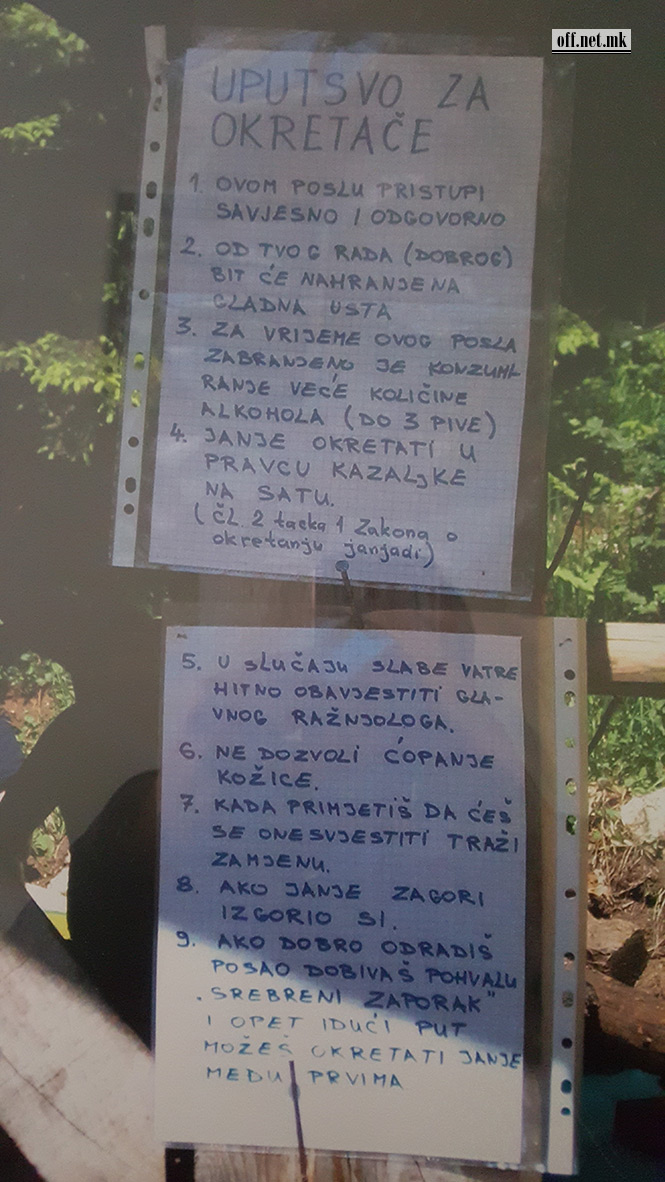 off.net.mk
UPUTSVO ZA
OKRETAČE
1. OVOM POSLU PRISTUPI
SAVJESNO I ODGOVORNO
2. OD TVOG RADA (DOBROG)
BIT ĆE NAHRANJENA
GLADNA USTA
3. ZA VRIJEME OVOG POSLA
ZABRANJENO JE KONZUMI-
RANJE VEĆE KOLIČINE
ALKOHOLA (DO 3 PIVE)
4. JANJE OKRETATI U
PRAVCU KAZALJKE
NA SATU.
(ČL. 2 tacka 1 Zakona o
okretanju janjadi)
5. U SLUČAJU SLABE VATRE
HITNO OBAVJESTITI GLA-
VNOG RAŽNJOLOGA.
6. NE DOZVOLI ĆOPANJE
KOŽICE.
7. KADA PRIMJETIŠ DA ĆEŠ
SE ONESVJESTITI TRAŽI
ZAMJENU.
8. AKO JANJE ZAGORI
IZGORIO SI.
9. AKO DOBRO ODRADIŠ
POSAO DOBIVAŠ POHVALU
„SREBRENI ZAPORAK"
I OPET IDUĆI PUT
MOŽEŠ OKRETATI JANJE
MEDU PRVIMA